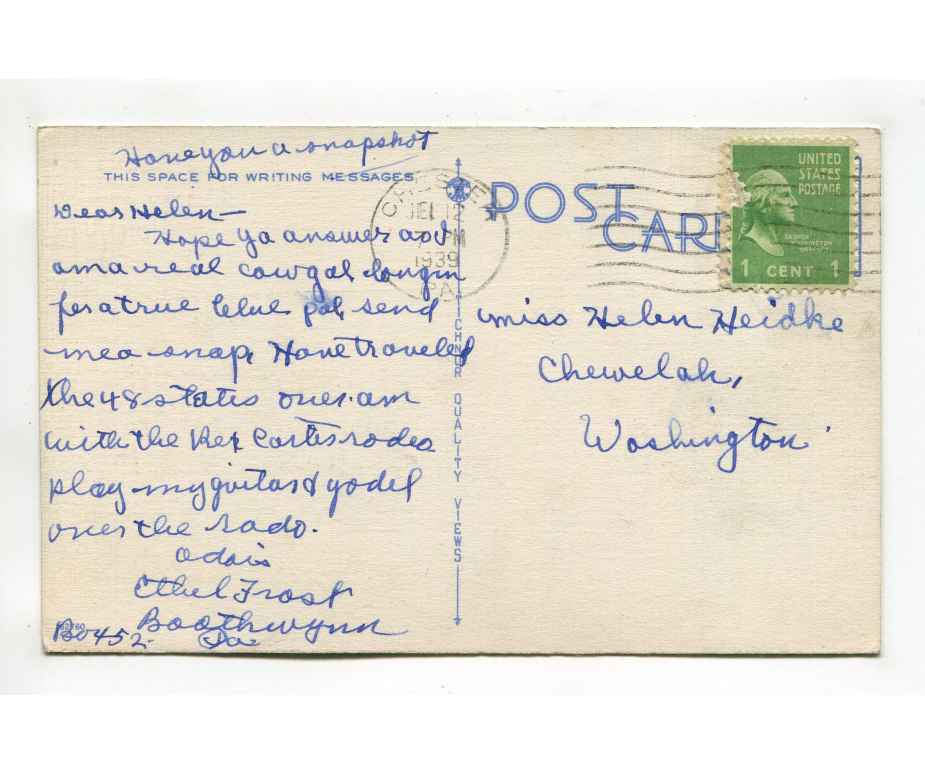 Have you a snapshot
THIS SPACE FOR WRITING MESSAGES
Dear Helen-
Hope ya answer and
am a real cowgal longin
fer a true blue pal, send
me a snap, Have traveled
the 48 states over. am
with the Rex rodeo
play my guitar & yodel
over the rado.
adois
Ethel Frost
Boothwynn
Bo 452 Pa
TICHNOR QUALITY VIEWS
POST
CARD
CHESTER
12
PM
1939
PA
UNITED
STATES
POSTAGE
1 CENT 1
Miss Helen Heidke
Chewelah,
Washington